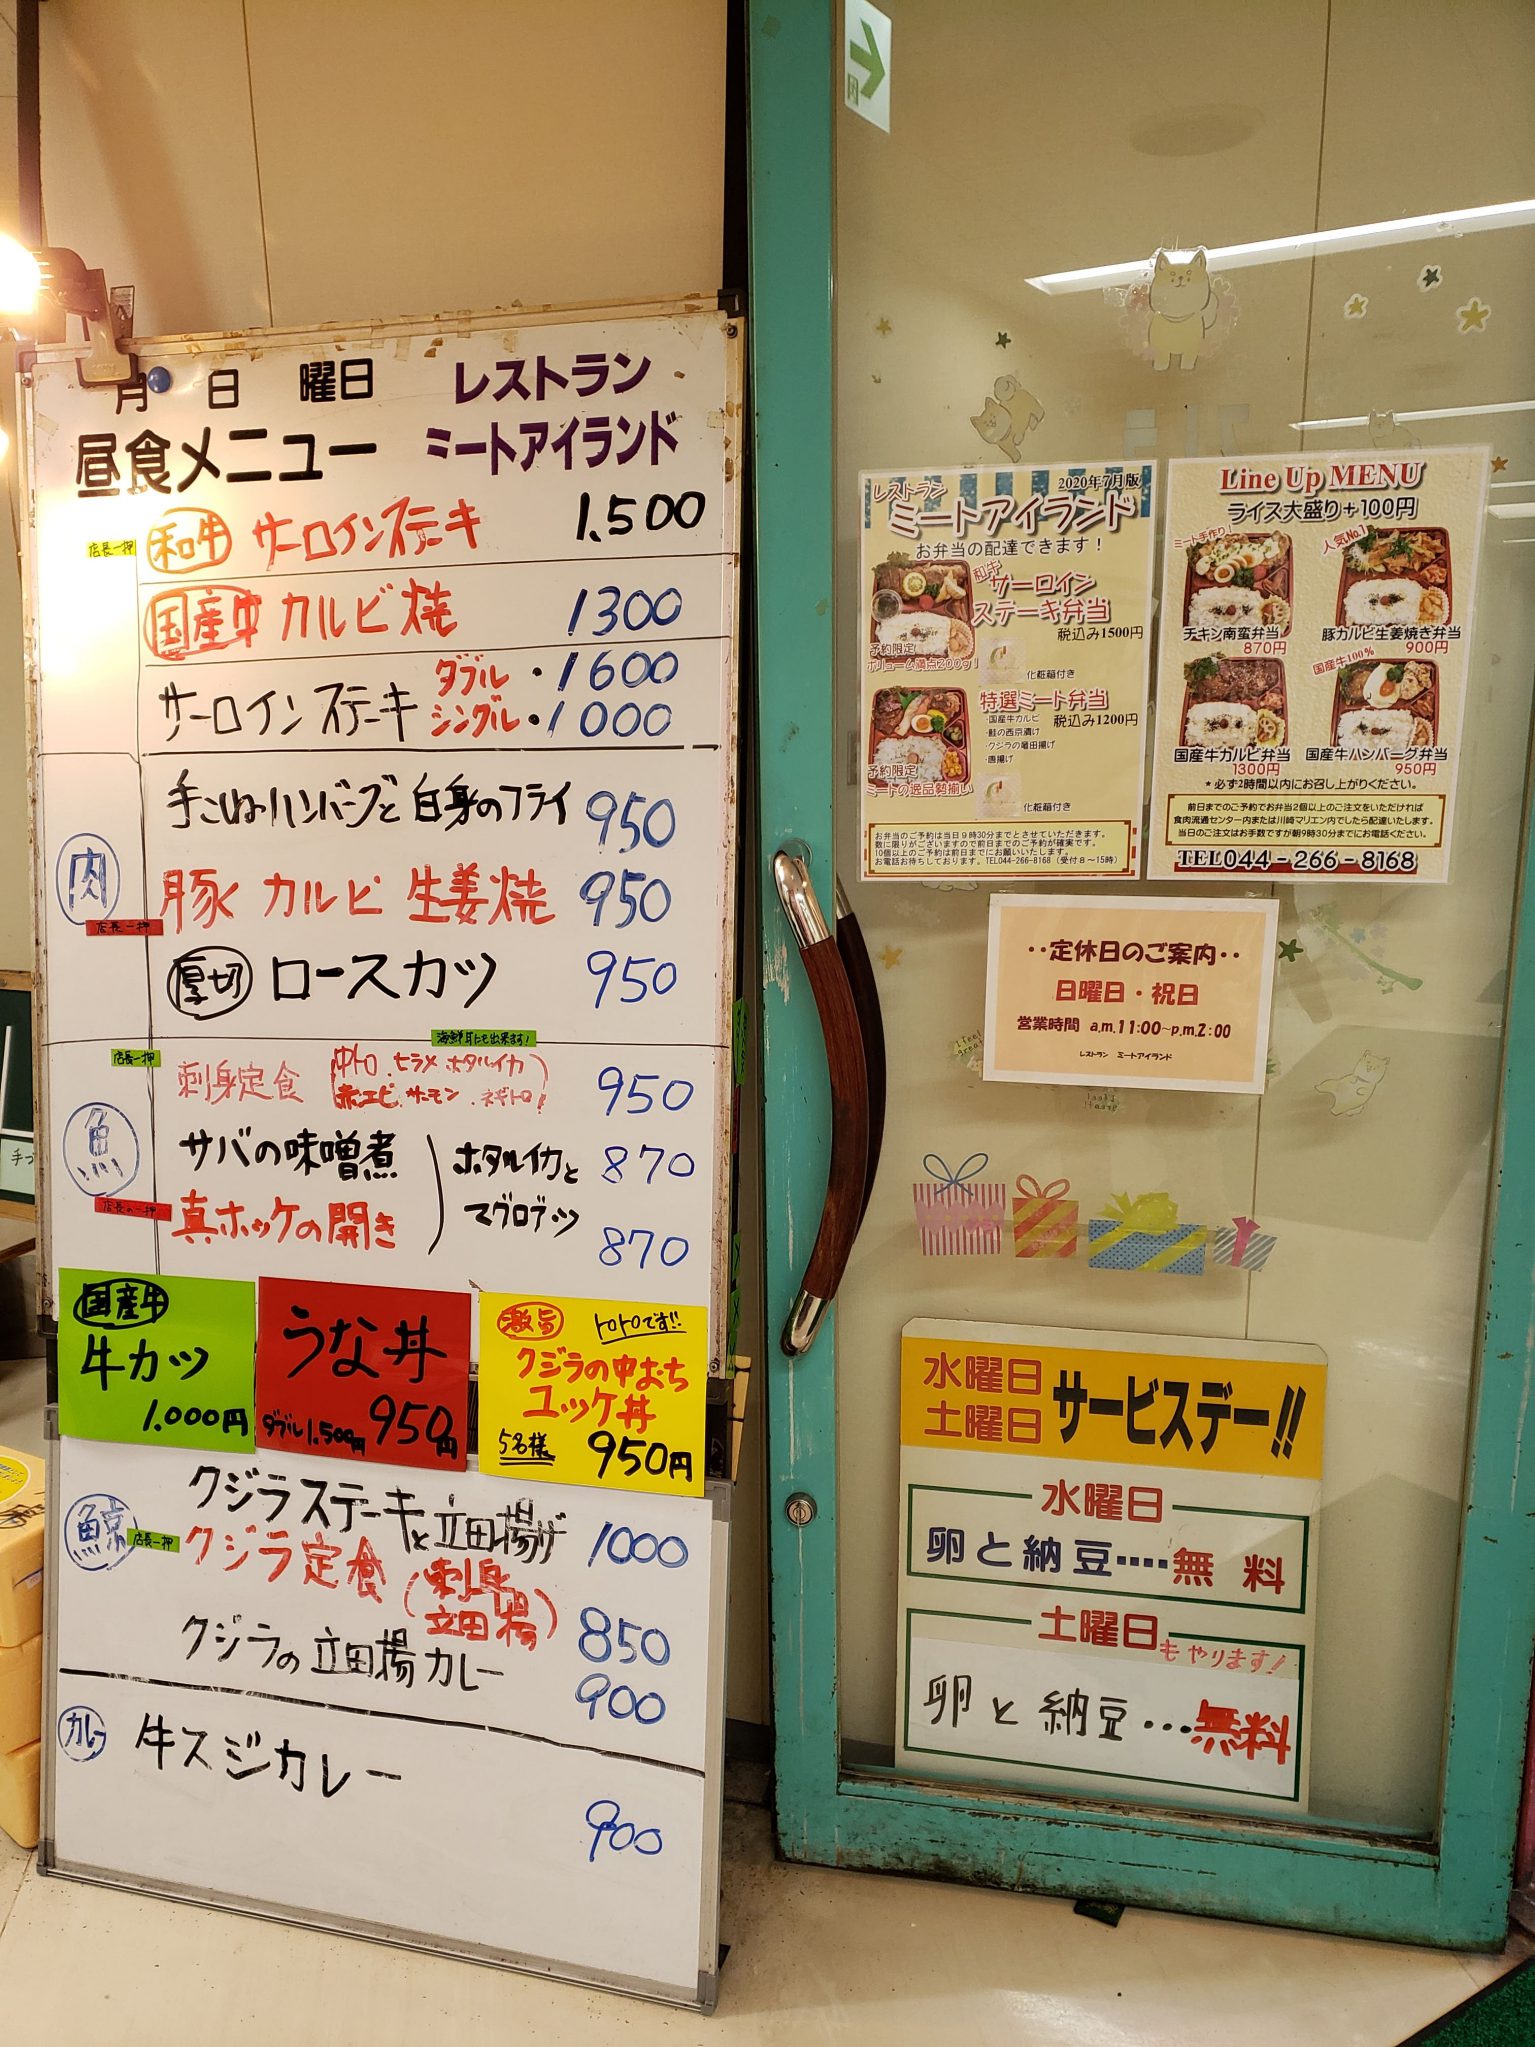 月 日 曜日 レストラン
昼食メニュー ミートアイランド
店長一押
和牛 サーロインステーキ 1.500
国産牛 カルビ焼 1300
サーロインステーキ ダブル・1600
シングル・1000
肉
手こねハンバーグと白身のフライ 950
店長一押
豚カルビ生姜焼 950
厚切 ロースカツ 950
海鮮丼にも出来ます!
店長一押
魚
刺身定食 (中トロ.ヒラメ ホタルイカ 950
赤エビ.サーモン.ネギトロ)
サバの味噌煮 ホタルイカと 870
店長の一押
真ホッケの開き マグロブツ 870
国産牛
牛カツ
1.000円
うな丼
ダブル1.500円 950円
激旨 トロトロです!!
クジラの中おち
ユッケ丼
5名様 950円
鯨
クジラステーキと立田揚げ 1000
店長一押
クジラ定食 (刺身 立田揚) 850
クジラの立田揚カレー 900
カレー
牛スジカレー
900
レストラン 2020年7月版
ミートアイランド
お弁当の配達できます!
和牛 サーロイン
ステーキ弁当
税込み1500円
予約限定
ボリューム満点200g!
化粧箱付き
特選ミート弁当
・国産牛カルビ 税込み1200円
・鮭の西京漬け
・クジラの竜田揚げ
・唐揚げ
予約限定
ミートの逸品勢揃い
化粧箱付き
お弁当のご予約は当日9時30分までとさせていただきます。
数に限りがございますので前日までのご予約が確実です。
10個以上のご予約は前日までにお願いいたします。
お電話お待ちしております。TEL044-266-8168(受付8~15時)
Line Up MENU
ライス大盛り+100円
ミート手作り!
人気No.1
チキン南蛮弁当
870円
豚カルビ生姜焼き弁当
900円
国産牛100%
国産牛カルビ弁当
1300円
国産牛ハンバーグ弁当
950円
*必ず2時間以内にお召し上がりください。
前日までのご予約でお弁当2個以上のご注文をいただければ
食肉流通センター内または川崎マリエン内でしたら配達いたします。
当日のご注文はお手数ですが朝9時30分までにお電話ください。
TEL044-266-8168
‥定休日のご案内‥
日曜日・祝日
営業時間 a.m.11:00~p.m.2:00
レストラン ミートアイランド
水曜日
土曜日 サービスデー!!
水曜日
卵と納豆‥‥無料
土曜日もやります!
卵と納豆…無料